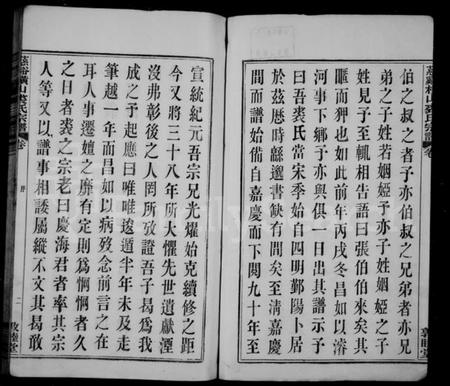 伯之叔之者子亦伯叔之兄弟者亦兄
弟之子姓若姻婭予亦子姓姻婭之子
姓見予至輒相告語曰張伯伯來矣其
暱而狎也如此前年丙戌冬昌如以濬
河事下鄉予亦與俱一日出其譜示予
曰吾裘氏當宋季始自四明鄞陽卜居
於茲厤時綦遠書缺有間矣至淸嘉慶
間而譜始僃自嘉慶而下閱九十年至
慈谿橫山裘氏宗譜
卷
敦睦堂
宣統紀元吾宗兄光耀始克續修之距
今又將三十八年所大懼先世遺獻湮
沒弗彰後之人罔所攷證吾子曷爲我
成之予起應曰唯唯逡遁半年未及走
筆越一年而昌如以病歿念前言之在
耳人事遷嬗之靡有定則爲惘惘者久
之日者裘之宗老曰慶海君者率其宗
人等又以譜事相諉属縱不文其曷敢
慈谿橫山裘氏宗譜
卷
序
二
敦睦堂